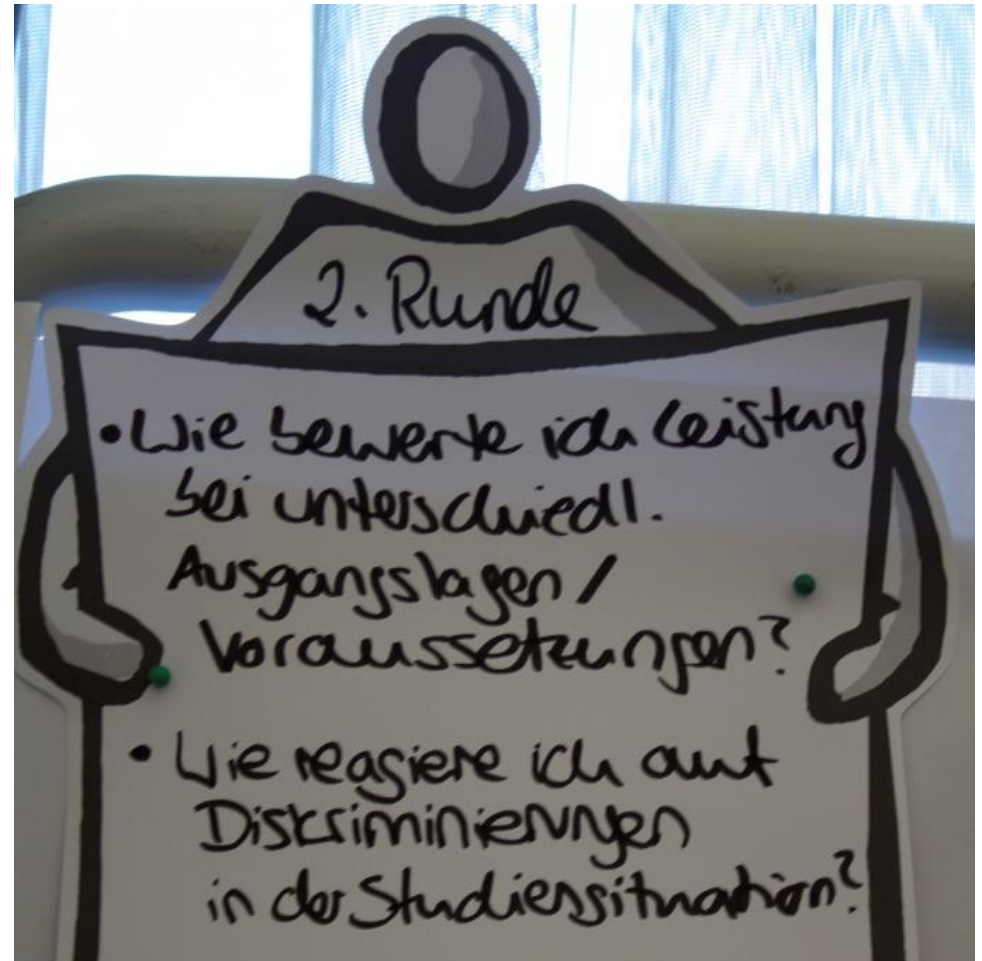 2. Runde
• Wie bewerte ich Leistung
bei unterschiedl.
Ausgangslagen /
Voraussetzungen?
• Wie reagiere ich auf
Diskriminierungen
in der Studiensituation?